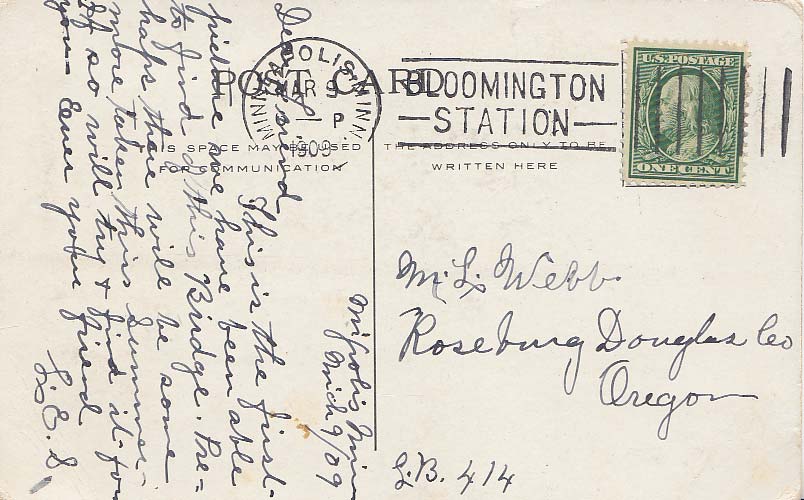 POST CARD
THIS SPACE MAY BE USED
FOR COMMUNICATION
THE ADDRESS ONLY TO BE
WRITTEN HERE
MINNEAPOLIS, MINN.
MAR 9
P
1909
BLOOMINGTON
STATION
U.S. POSTAGE
ONE CENT
Mplis Minn
Mch 9/09
Dear friend
This is the first
picture we have been able
to find of this Bridge. Per=
haps there will be some
more taken this Summer.
If so will try & find it for
you - Ever your friend
L. E. S.
Mr. L. Webb
Roseburg Douglas Co
Oregon
L.B. 414